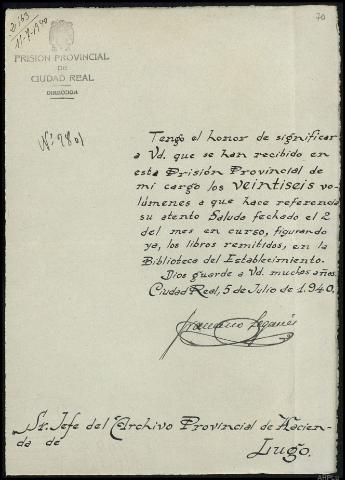 70
11-7-940
PRISIÓN PROVINCIAL
DE
CIUDAD REAL
DIRECCIÓN
Nº 2801
Tengo el honor de significar
a Vd. que se han recibido en
esta Prisión Provincial de
mi cargo los veintiseis vo-
lúmenes a que hace referencia
su atento Saluda fechado el 2
del mes en curso, figurando
ya, los libros remitidos, en la
Biblioteca del Establecimiento.
Dios guarde a Vd. muchos años.
Ciudad Real, 5 de Julio de 1.940.
Francisco
Sr. Jefe del Archivo Provincial de Hacien-
da de
Lugo.
AHPLU